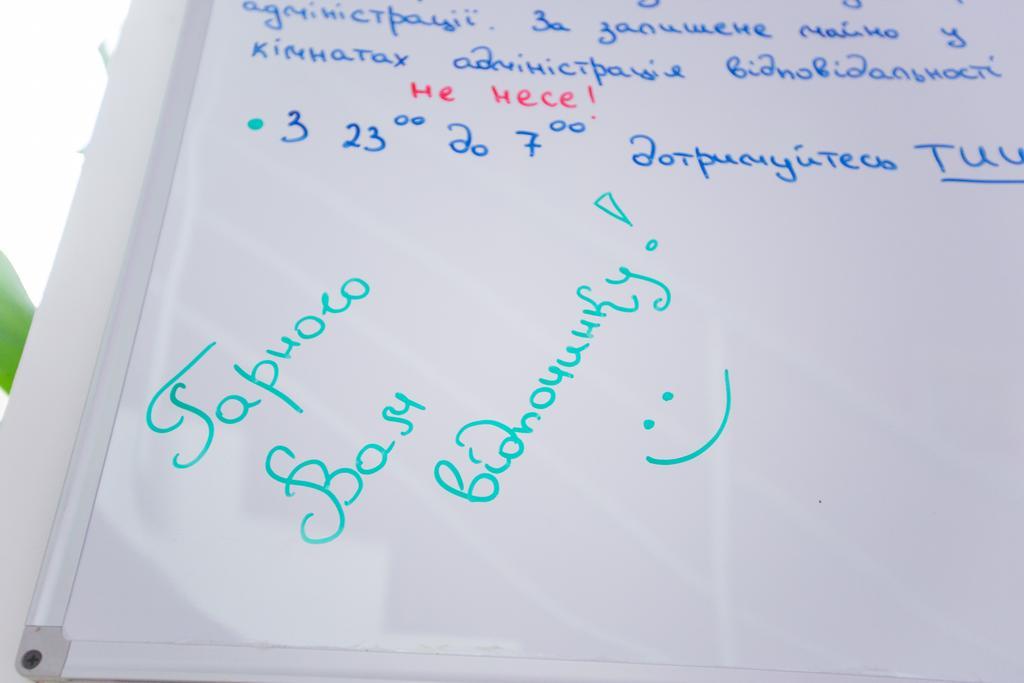 адміністрації. За залишене майно у
кімнатах адміністрація відповідальності
не несе!
• З 23⁰⁰ до 7⁰⁰ дотримуйтесь
Гарного
Вам
відпочинку!
:)